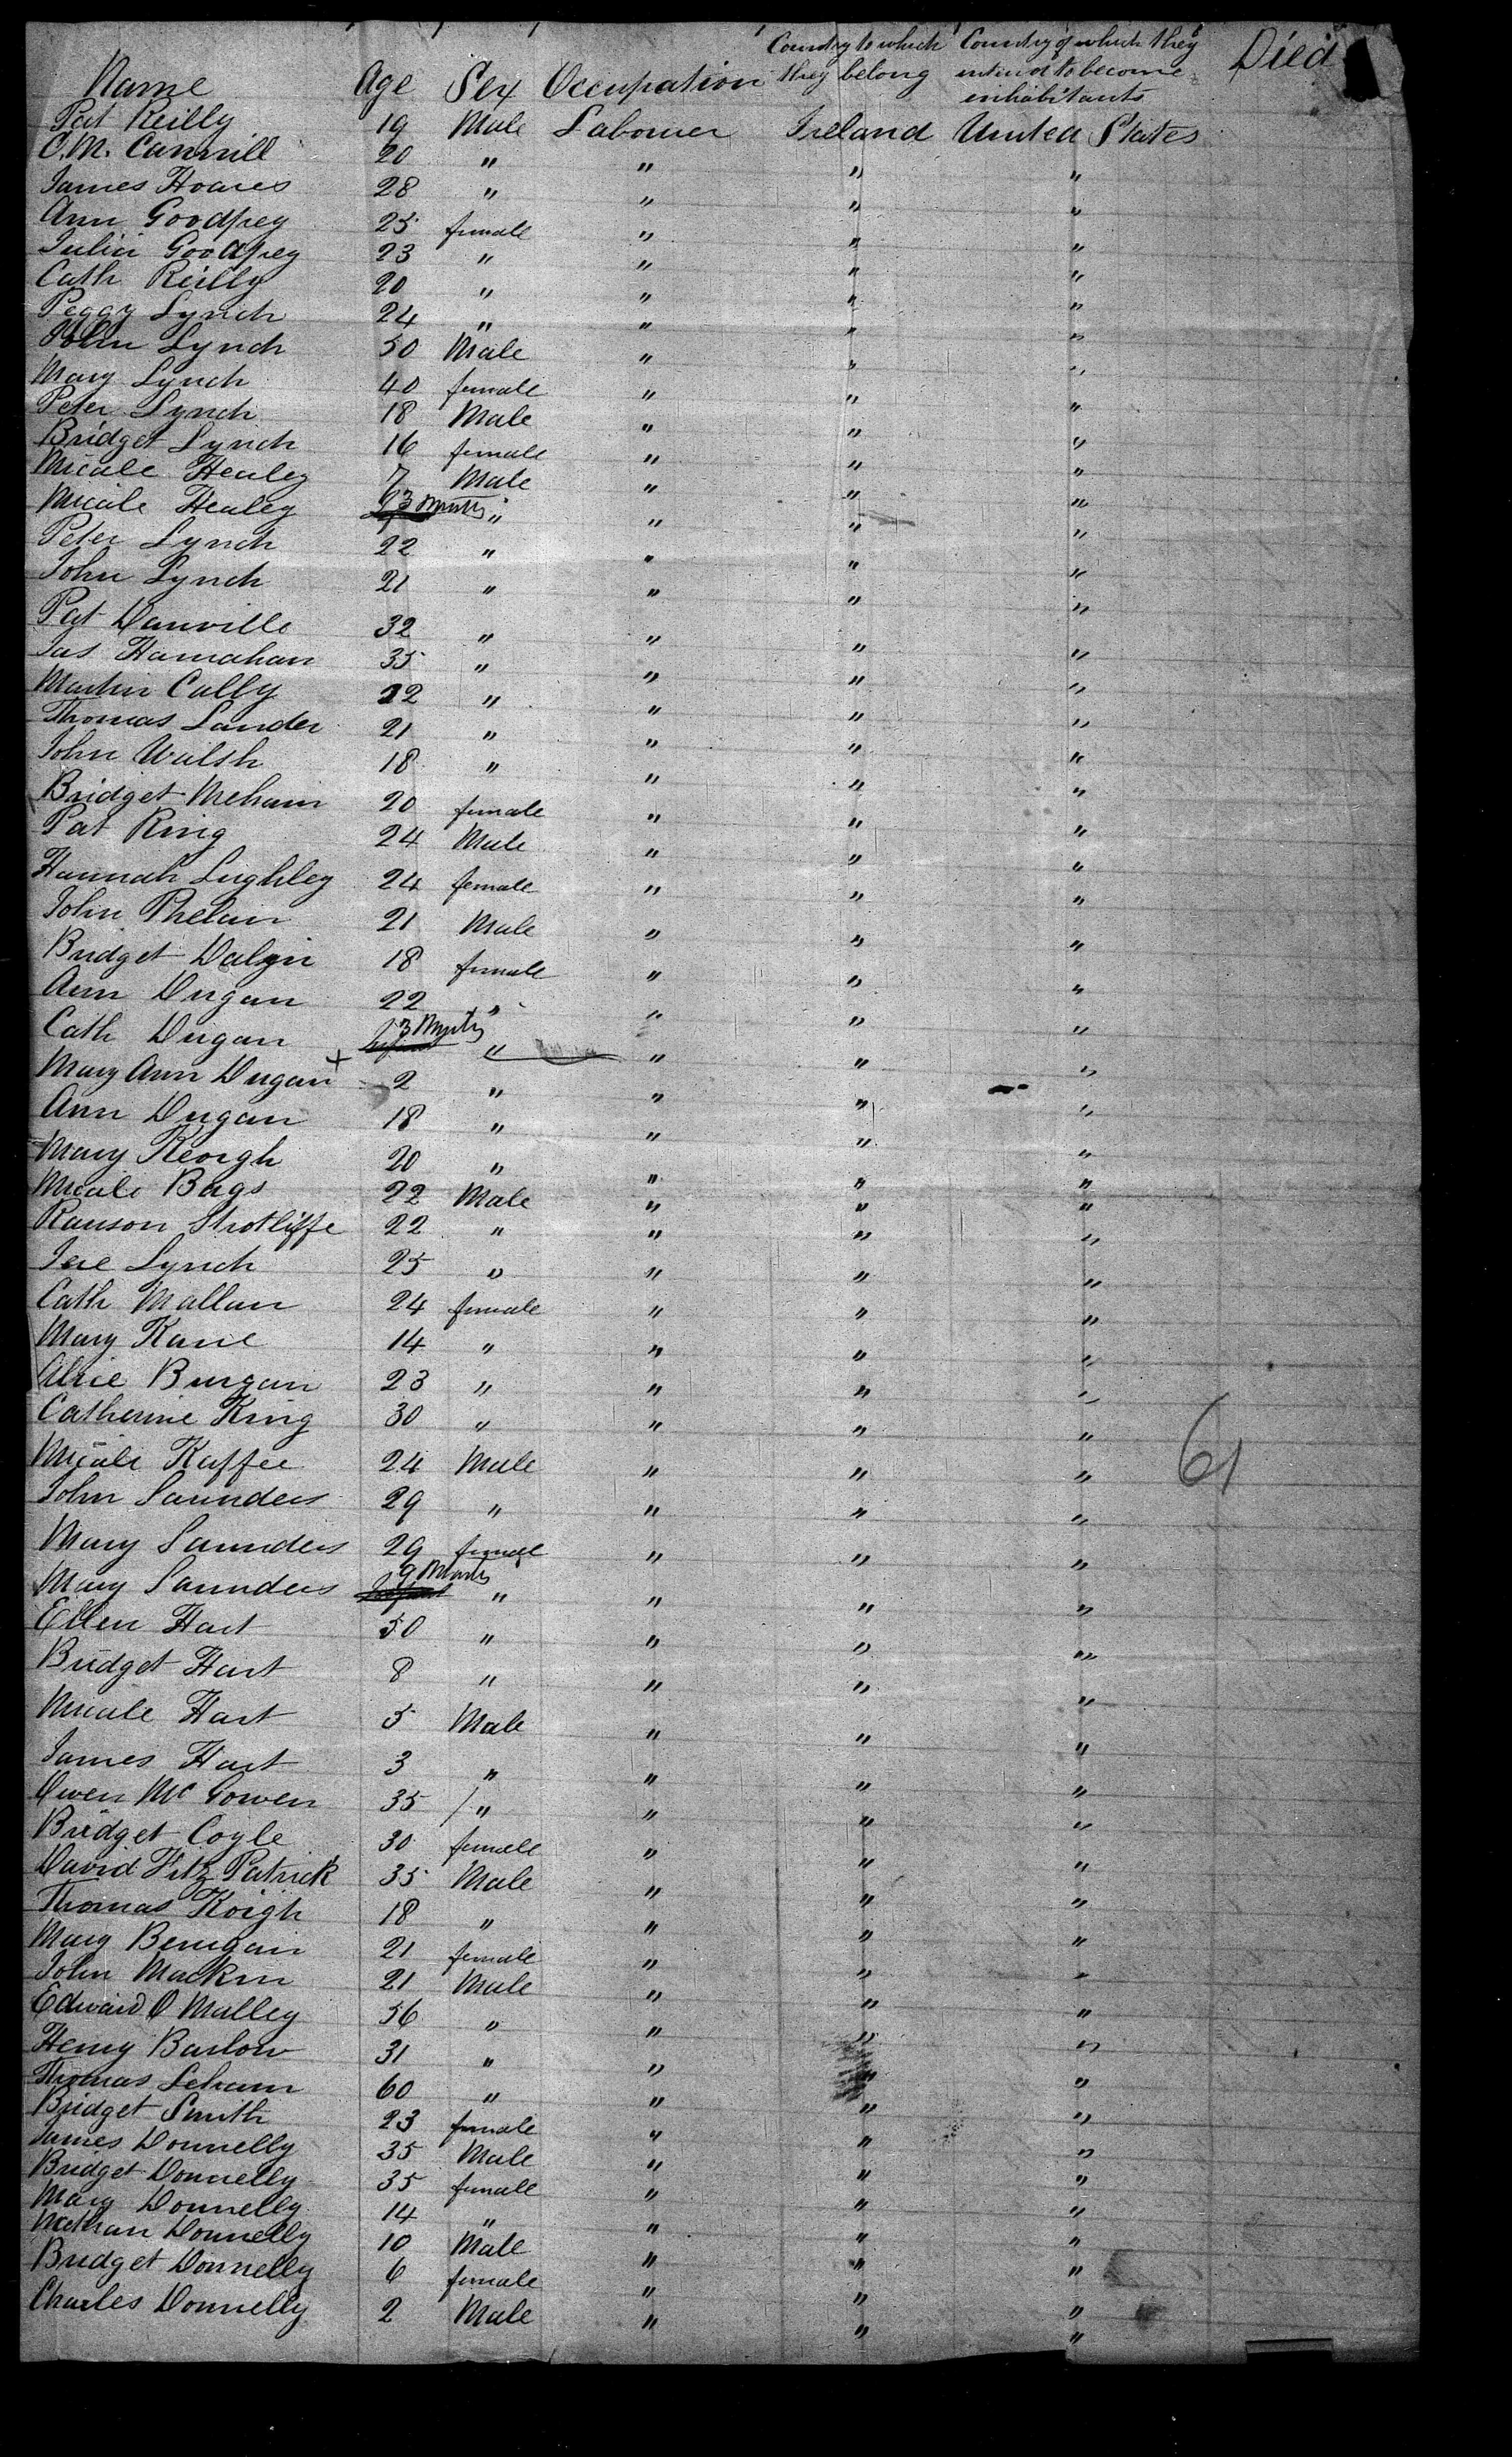 Name Age Sex Occupation Country to which they belong Country of which they intend to become inhabitants Died
Pat Reilly 19 Male Labourer Ireland United States
C.M. Cannill 20 " " " "
James Hoares 28 " " " "
Ann Goodfrey 25 female " " "
Julia Goodfrey 23 " " " "
Cath Reilly 20 " " " "
Peggy Lynch 24 " " " "
John Lynch 50 Male " " "
Mary Lynch 40 female " " "
Peter Lynch 18 Male " " "
Bridget Lynch 16 female " " "
Micale Healey 7 Male " " "
Micale Healey 3 Months " " " "
Peter Lynch 22 " " " "
John Lynch 21 " " " "
Pat Danville 32 " " " "
Jas Hamahan 35 " " " "
Martin Cally 22 " " " "
Thomas Lander 21 " " " "
John Walsh 18 " " " "
Bridget Mehain 20 female " " "
Pat King 24 Male " " "
Hannah Lughley 24 female " " "
John Phelan 21 Male " " "
Bridget Dalyn 18 female " " "
Ann Dugan 22 " " " "
Cath Dugan 3 Months " " " "
Mary Ann Dugan + 2 " " " "
Ann Dugan 18 " " " "
Mary Keorgh 20 " " " "
Micale Bags 22 Male " " "
Ranson Strotliffe 22 " " " "
Jere Lynch 25 " " " "
Cath Mallan 24 female " " "
Mary Kane 14 " " " "
Alice Burgan 23 " " " "
Catherine King 30 " " " "
Micale Kaffee 24 Male " " " 61
John Saunders 29 " " " "
Mary Saunders 29 female " " "
Mary Saunders 9 Months " " " "
Ellen Hart 50 " " " "
Bridget Hart 8 " " " "
Micale Hart 5 Male " " "
James Hart 3 " " " "
Owen McGowen 35 " " " "
Bridget Coyle 30 female " " "
David Fitz Patrick 35 Male " " "
Thomas Koigh 18 " " " "
Mary Berrigan 21 female " " "
John Mackin 21 Male " " "
Edward O Malley 56 " " " "
Henry Barlow 31 " " " "
Thomas Leham 60 " " " "
Bridget Smith 23 female " " "
James Donnelly 35 Male " " "
Bridget Donnelly 35 female " " "
Mary Donnelly 14 " " " "
Nathan Donnelly 10 Male " " "
Bridget Donnelly 6 female " " "
Charles Donnelly 2 Male " " "